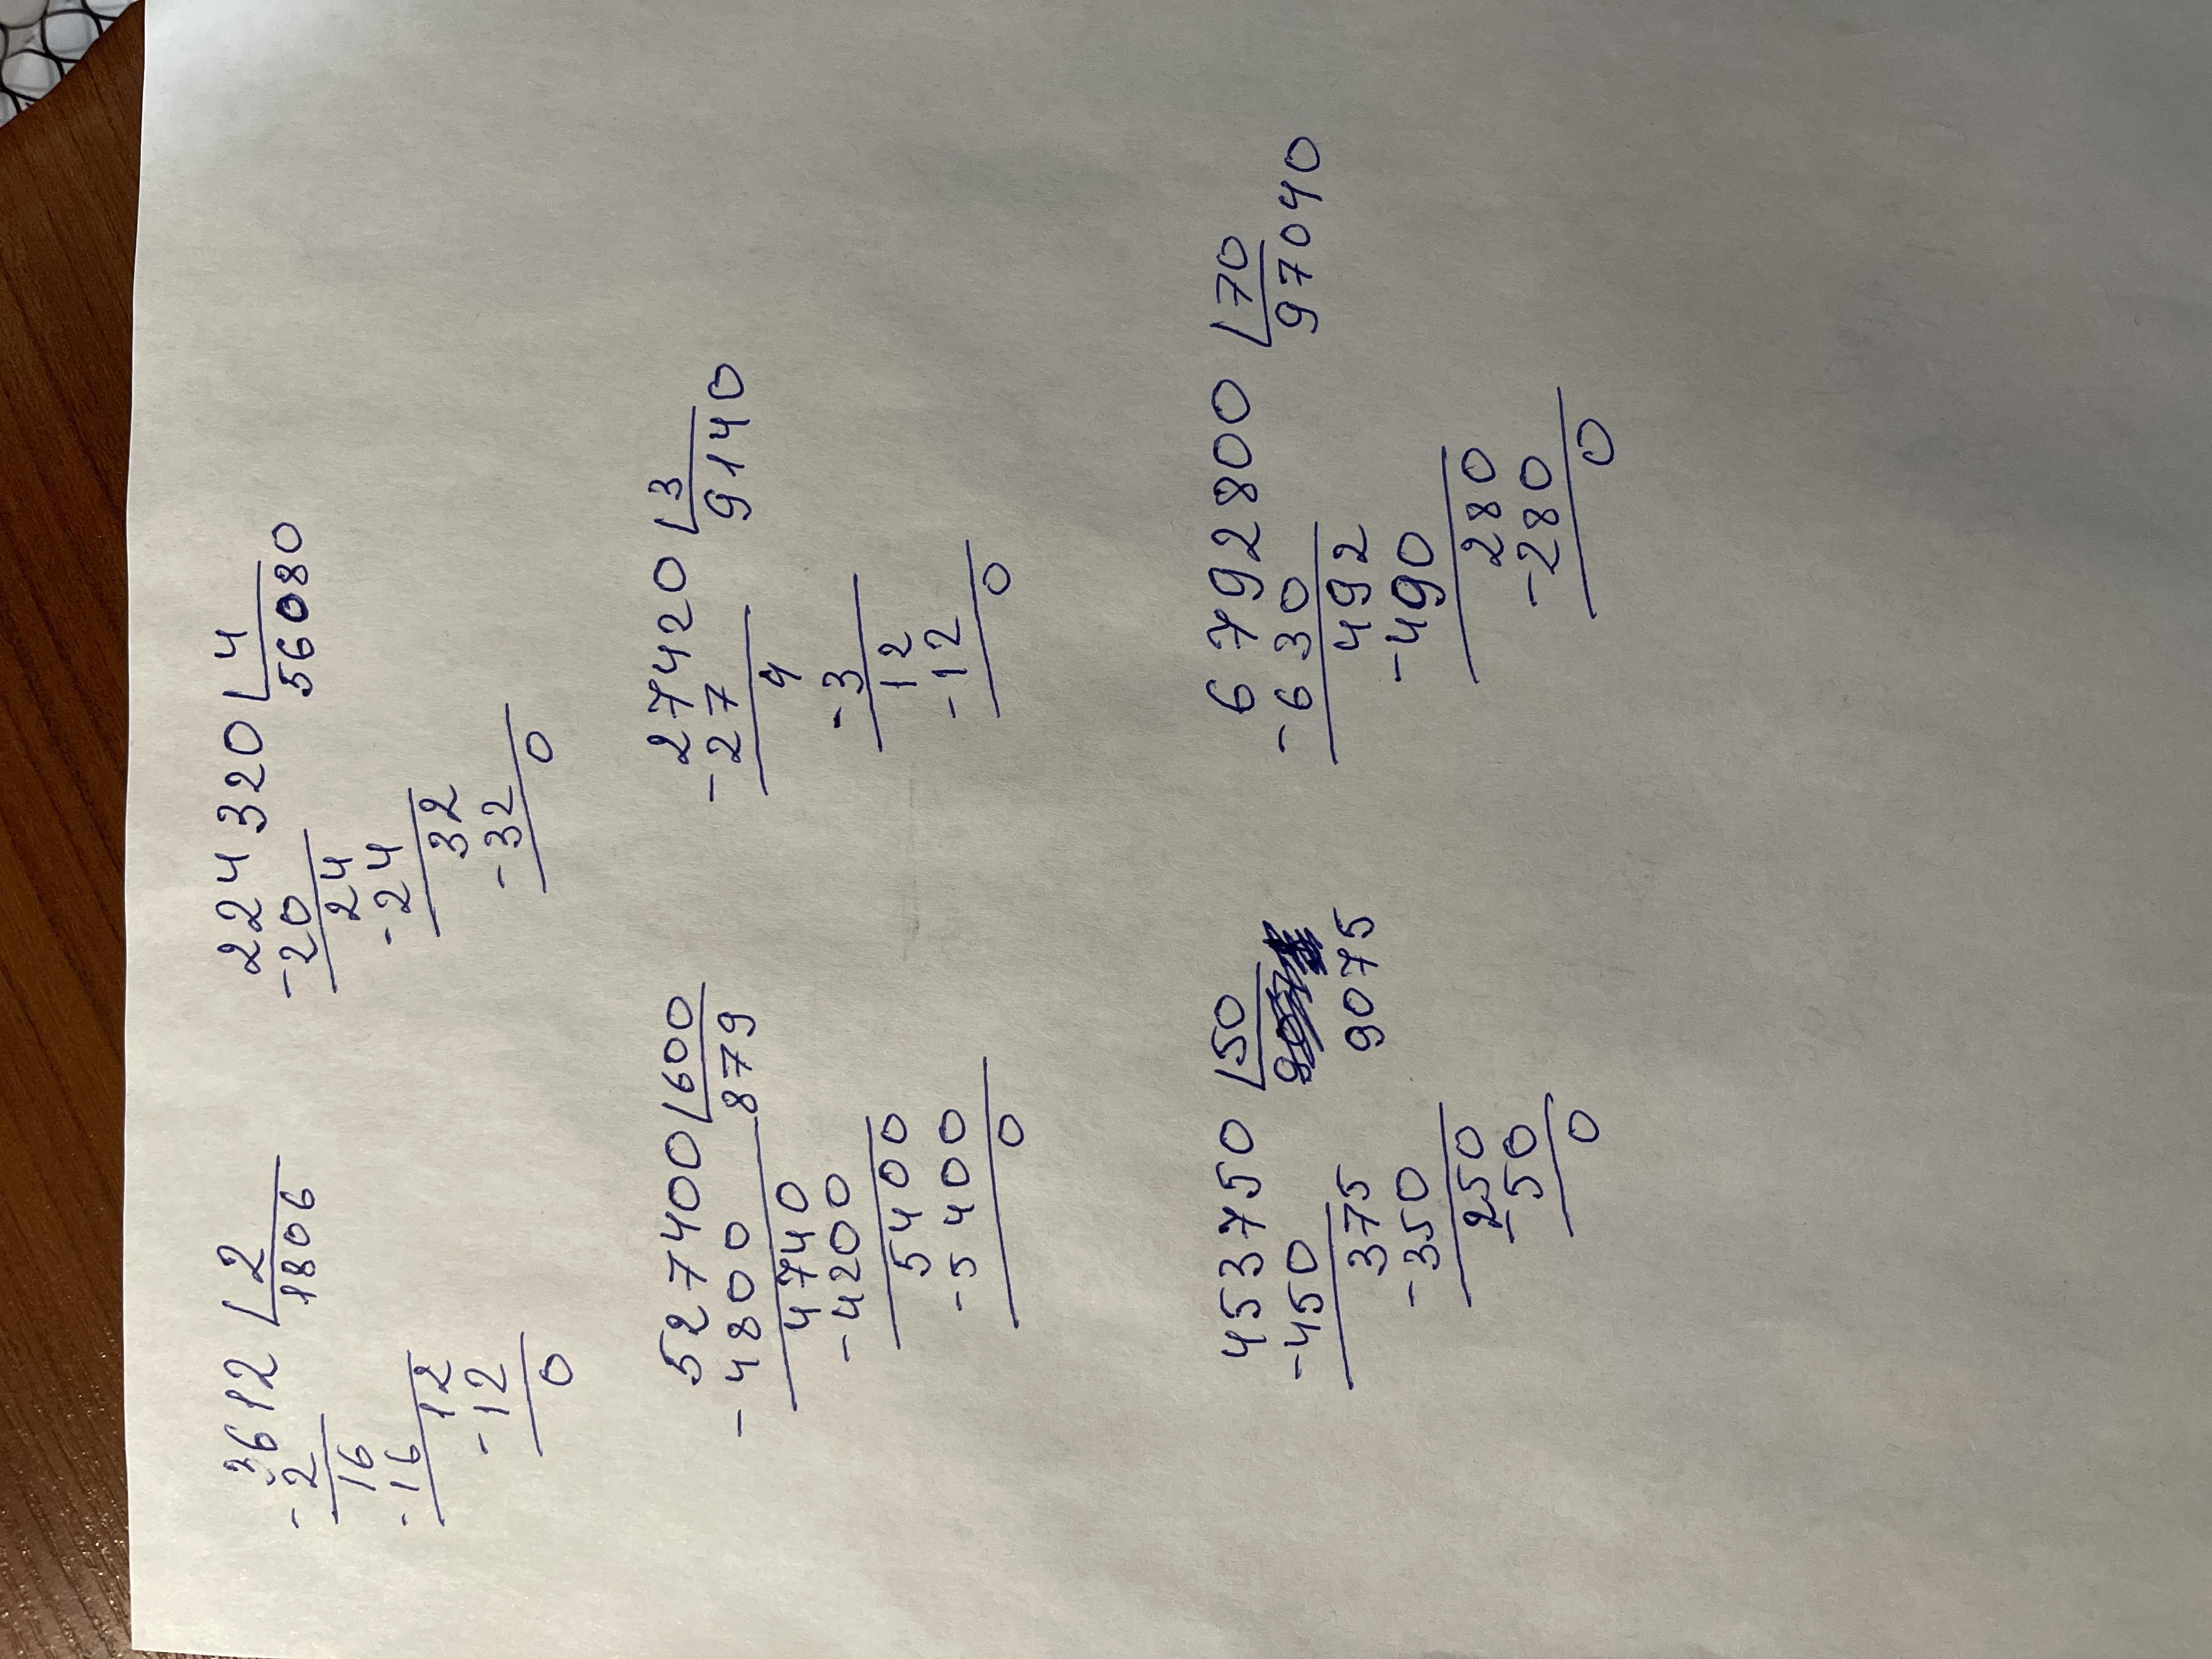 3612 2
-2 1806
16
-16
12
-12
0
224320 4
-20 56080
24
-24
32
-32
0
527400 600
-4800 879
4740
-4200
5400
-5400
0
27420 3
-27 9140
4
-3
12
-12
0
453750 50
-450 9075
375
-350
250
-50
0
6792800 70
-630 97040
492
-490
280
-280
0